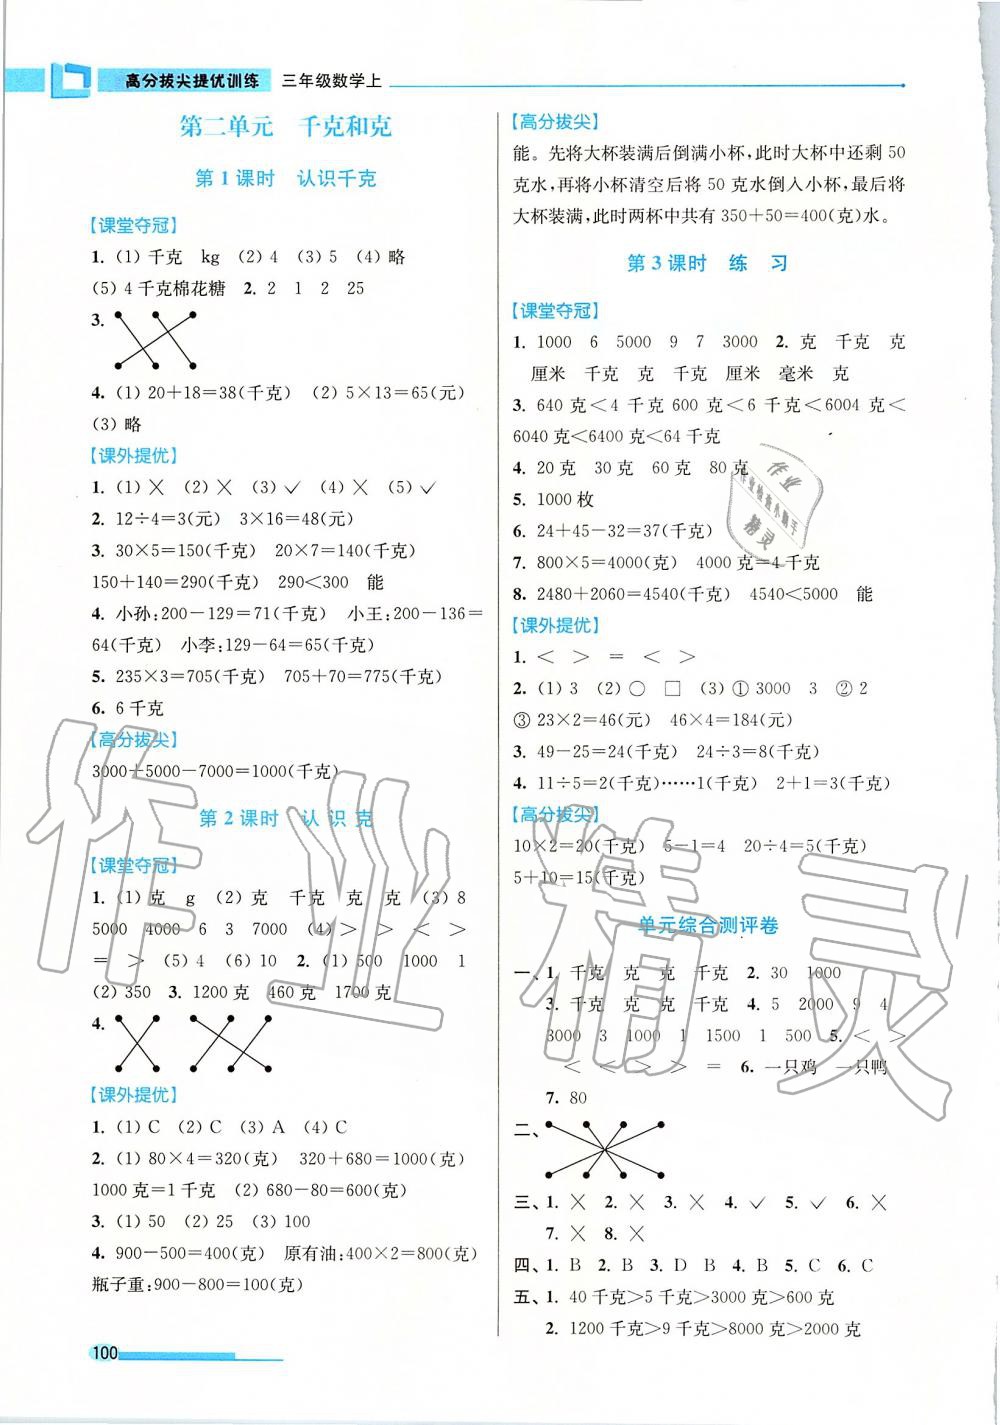 高分拔尖提优训练 三年级数学上
第二单元 千克和克
第1课时 认识千克
【课堂夺冠】
1. (1)千克 kg (2)4 (3)5 (4)略
(5)4千克棉花糖 2. 2 1 2 25
3.
4. (1)20+18=38(千克) (2)5×13=65(元)
(3)略
【课外提优】
1. (1)╳ (2)╳ (3)✓ (4)╳ (5)✓
2. 12÷4=3(元) 3×16=48(元)
3. 30×5=150(千克) 20×7=140(千克)
150+140=290(千克) 290<300 能
4. 小孙:200-129=71(千克) 小王:200-136=
64(千克) 小李:129-64=65(千克)
5. 235×3=705(千克) 705+70=775(千克)
6. 6千克
【高分拔尖】
3000+5000-7000=1000(千克)
第2课时 认识克
【课堂夺冠】
1. (1)克 g (2)克 千克 克 克 (3)8
5000 4000 6 3 7000 (4)> > < >
= > (5)4 (6)10 2. (1)500 1000 1
(2)350 3. 1200克 460克 1700克
4.
【课外提优】
1. (1)C (2)C (3)A (4)C
2. (1)80×4=320(克) 320+680=1000(克)
1000克=1千克 (2)680-80=600(克)
3. (1)50 (2)25 (3)100
4. 900-500=400(克) 原有油:400×2=800(克)
瓶子重:900-800=100(克)
100
【高分拔尖】
能。先将大杯装满后倒满小杯,此时大杯中还剩50
克水,再将小杯清空后将50克水倒入小杯,最后将
大杯装满,此时两杯中共有350+50=400(克)水。
第3课时 练习
【课堂夺冠】
1. 1000 6 5000 9 7 3000 2. 克 千克 克
厘米 千克 克 千克 厘米 毫米 克
3. 640克<4千克600克<6千克<6004克<
6040克<6400克<64千克
4. 20克 30克 60克 80克
5. 1000枚
6. 24+45-32=37(千克)
7. 800×5=4000(克) 4000克=4千克
8. 2480+2060=4540(千克) 4540<5000 能
【课外提优】
1. < > = < >
2. (1)3 (2)○ □ (3)①3000 3 ②2
③23×2=46(元) 46×4=184(元)
3. 49-25=24(千克) 24÷3=8(千克)
4. 11÷5=2(千克)……1(千克) 2+1=3(千克)
【高分拔尖】
10×2=20(千克) 5-1=4 20÷4=5(千克)
5+10=15(千克)
单元综合测评卷
一、1. 千克 克 克 千克 2. 30 1000
3. 千克 克 克 千克 4. 5 2000 9 4
3000 3 1000 1 1500 1 500 5. < >
< < > > = 6. 一只鸡 一只鸭
7. 80
二、
三、1. ╳ 2. ╳ 3. ╳ 4. ✓ 5. ✓ 6. ╳
7. ╳ 8. ╳
四、1. B 2. B 3. B 4. B 5. C 6. C
五、1. 40千克>5千克>3000克>600克
2. 1200千克>9千克>8000克>2000克
作业
作业检查小助手
精灵
作业精灵